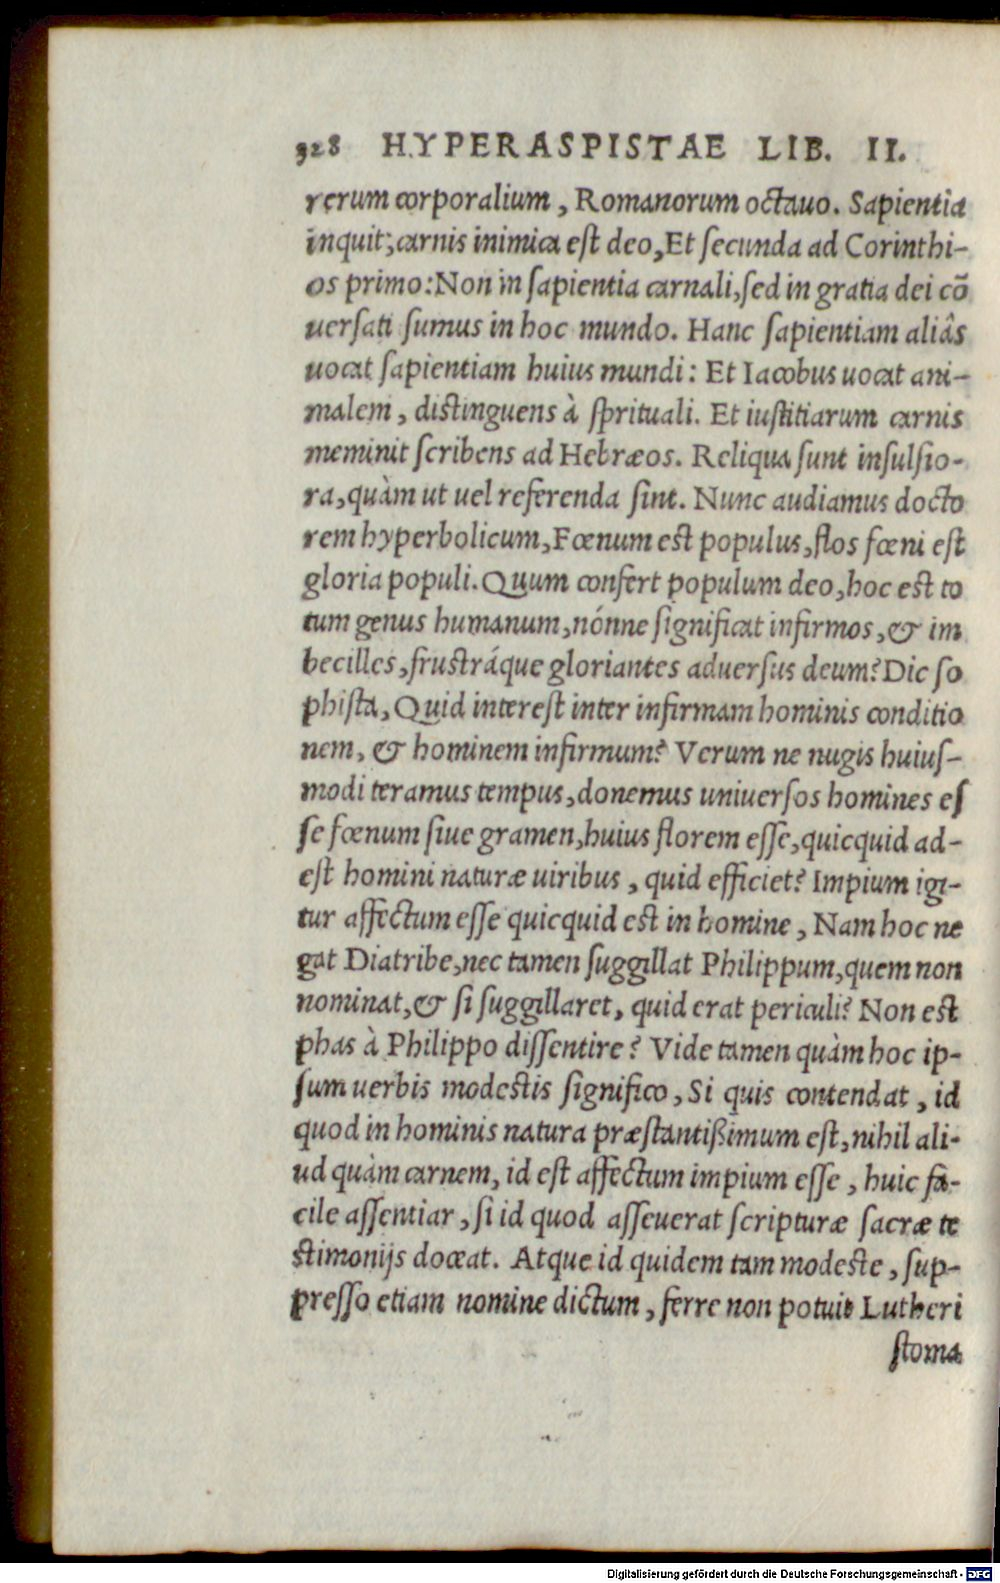 328 HYPERASPISTAE LIB. II.
rerum corporalium, Romanorum octauo. Sapientia
inquit, carnis inimica est deo, Et secunda ad Corinthi-
os primo: Non in sapientia carnali, sed in gratia dei cō
uersati sumus in hoc mundo. Hanc sapientiam aliâs
uocat sapientiam huius mundi: Et Iacobus uocat ani-
malem, distinguens à sprituali. Et iustitiarum carnis
meminit scribens ad Hebræos. Reliqua sunt insulsio-
ra, quàm ut uel referenda sint. Nunc audiamus docto
rem hyperbolicum, Fœnum est populus, flos fœni est
gloria populi. Quum confert populum deo, hoc est to
tum genus humanum, nónne significat infirmos, & im
becilles, frustráque gloriantes aduersus deum? Dic so
phista, Quid interest inter infirmam hominis conditio
nem, & hominem infirmum? Verum ne nugis huius-
modi teramus tempus, donemus uniuersos homines es
se fœnum siue gramen, huius florem esse, quicquid ad-
est homini naturæ uiribus, quid efficiet? Impium igi-
tur affectum esse quicquid est in homine, Nam hoc ne
gat Diatribe, nec tamen suggillat Philippum, quem non
nominat, & si suggillaret, quid erat periculi? Non est
phas à Philippo dissentire? Vide tamen quàm hoc ip-
sum uerbis modestis significo, Si quis contendat, id
quod in hominis natura præstantißimum est, nihil ali-
ud quàm carnem, id est affectum impium esse, huic fa-
cile assentiar, si id quod asseuerat scripturæ sacræ te
stimonijs doceat. Atque id quidem tam modeste, sup-
presso etiam nomine dictum, ferre non potuit Lutheri
stoma
Digitalisierung gefördert durch die Deutsche Forschungsgemeinschaft - DFG